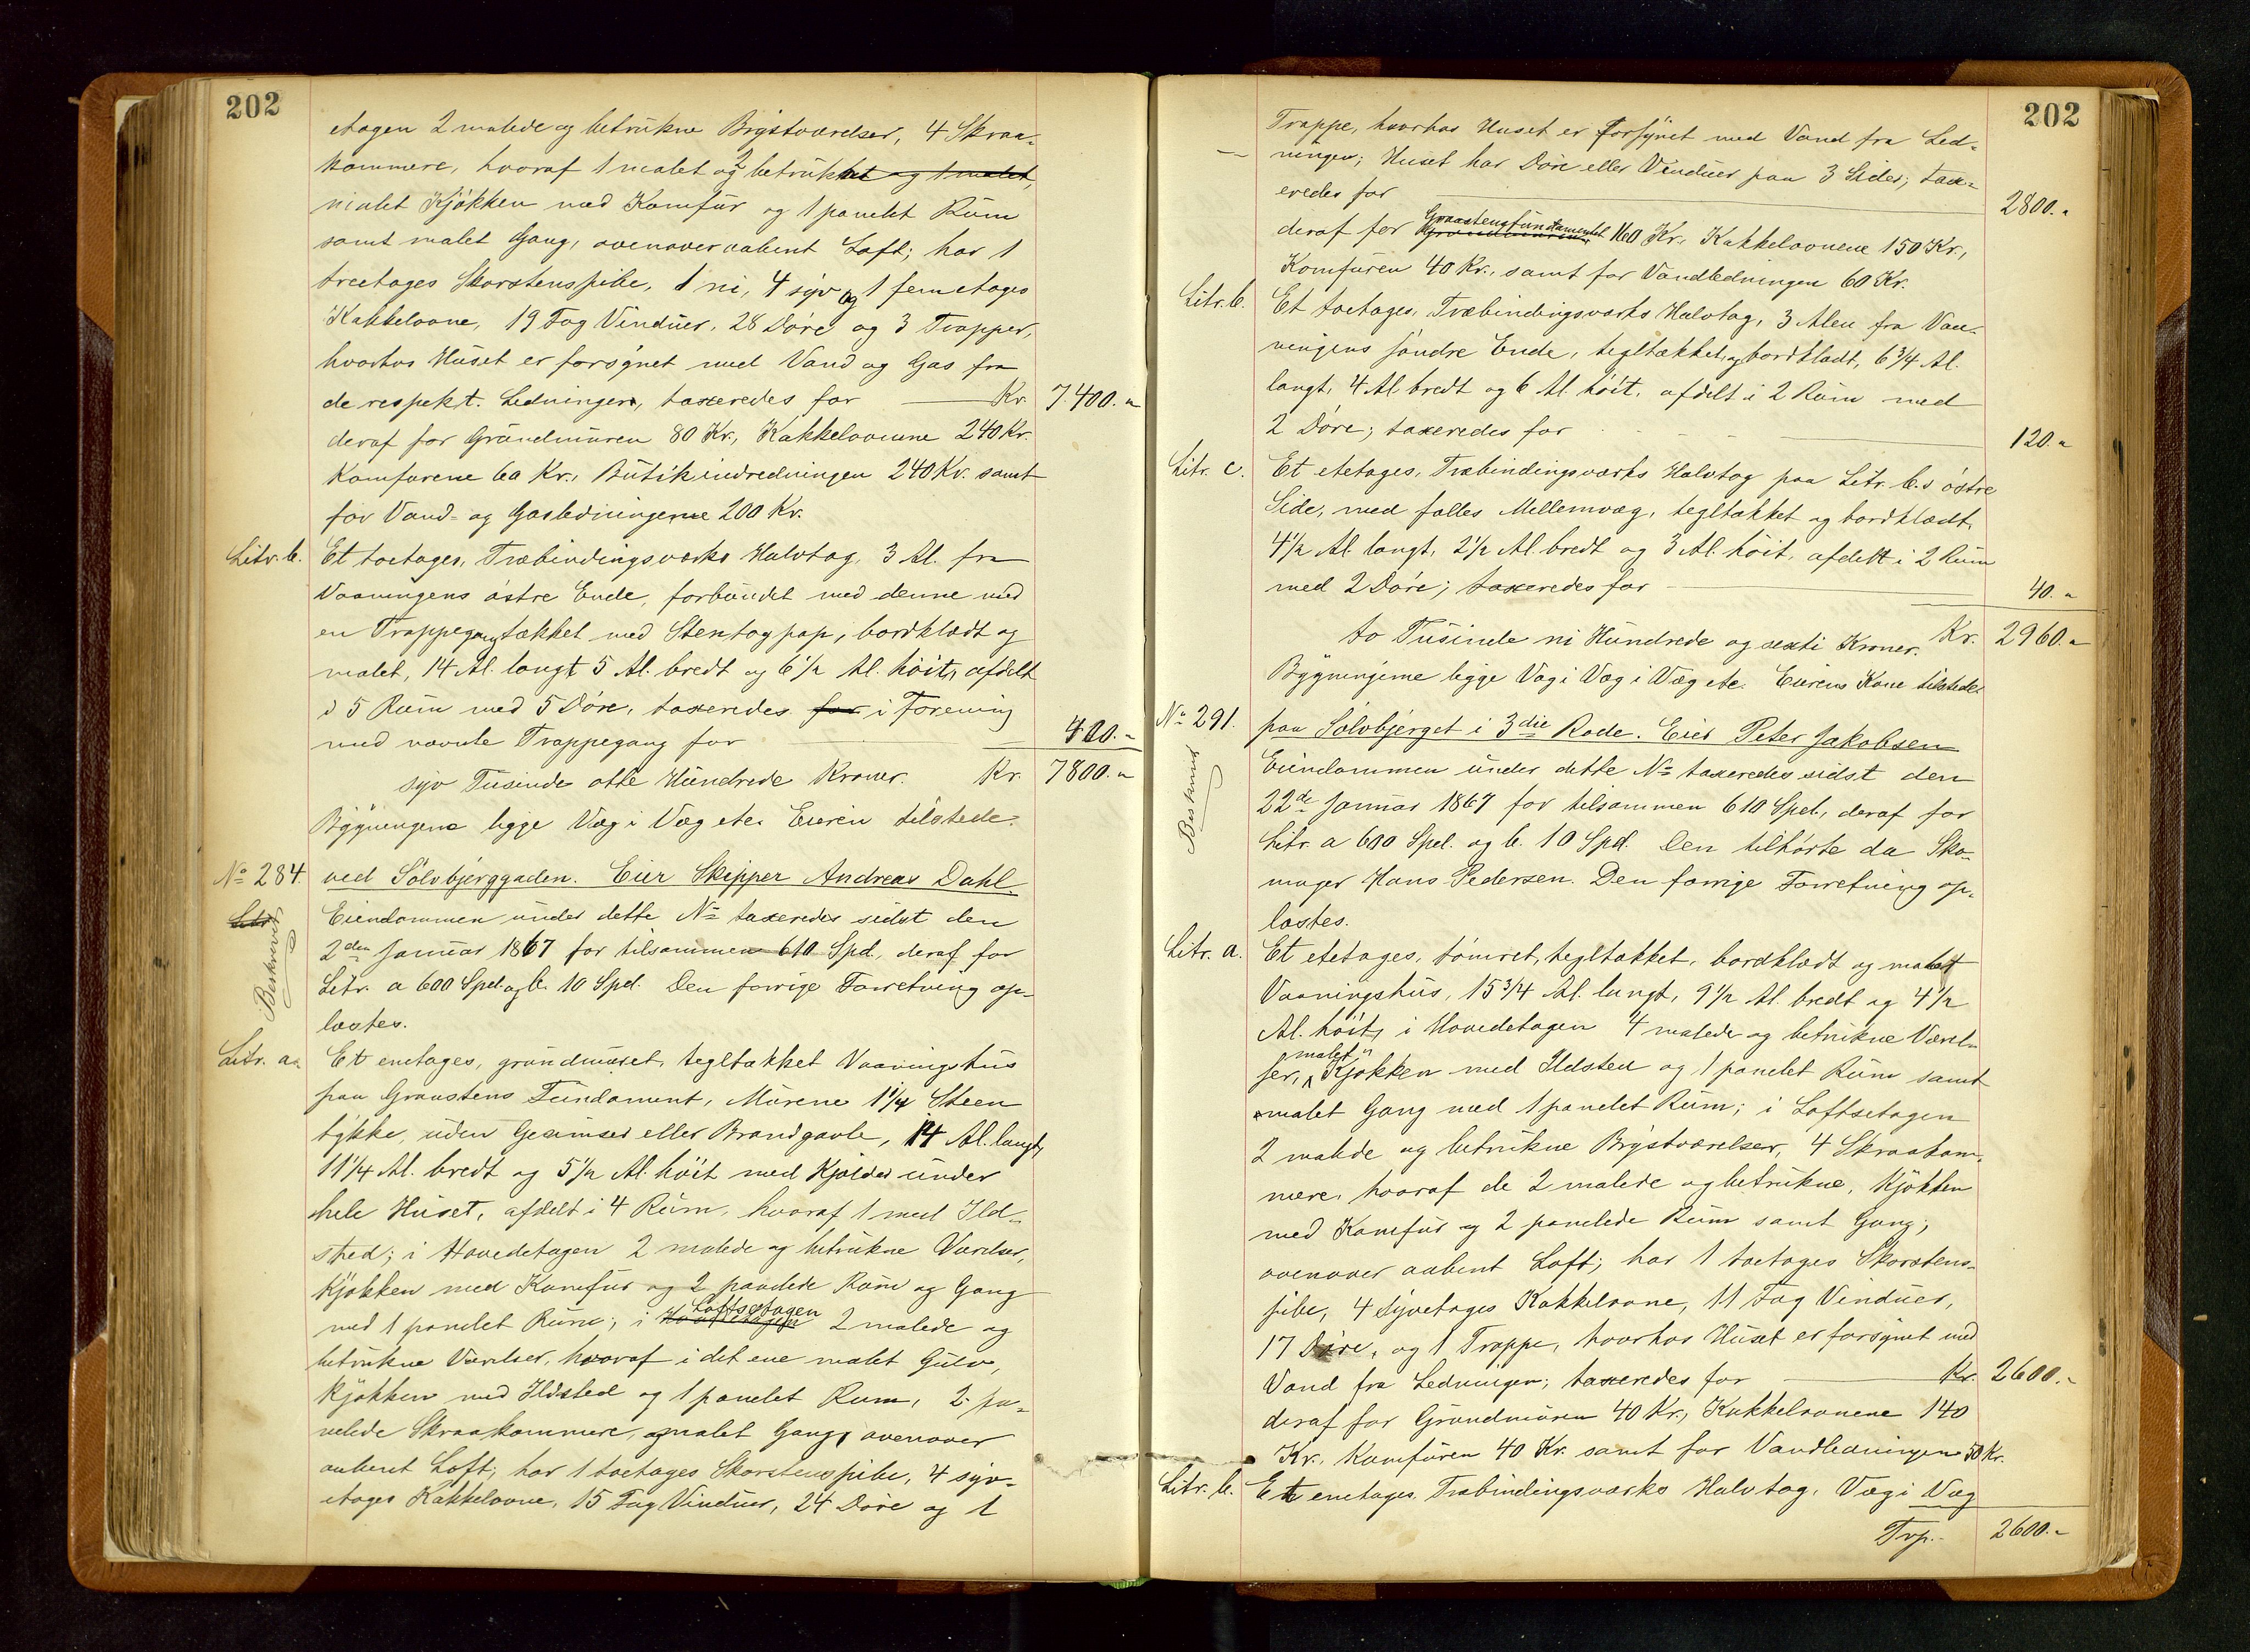 202
etagen 2 malede og betrukne Brystværelser, 4 Skraa-
kammere, hvoraf 1 malet og 2 betrukket og 1 malet,
malet Kjøkken med Komfur og 1 panelet Rum
samt malet Gang, ovenover aabent Loft; har 1
treetages Skorstenspibe, 1 ni, 4 syv og 1 femetages
Kakkelovne, 19 Fag Vinduer, 28 Døre og 3 Trapper,
hvorhos Huset er forsynet med Vand og Gas fra
de respekt. Ledninger, taxeredes for Kr. 7400.-
deraf for Grundmuren 80 Kr., Kakkelovnene 240 Kr.
Komfurene 60 Kr., Butikindredningen 240 Kr. samt
for Vand- og Gasledningerne 200 Kr.
Litr. b. Et toetages, Træbindingsværks Halvtag, 3 Al. fra
Vaaningens østre Ende, forbundet med denne med
en Trappegang, tækket med Stentagpap, bordklædt og
malet, 14 Al. langt 5 Al. bredt og 6 1/2 Al. høit, afdelt
i 5 Rum med 5 Døre, taxeredes for i Forening
med nævnte Trappegang for 400.-
syv Tusinde otte Hundrede Kroner. Kr. 7800.-
Bygningene ligge Væg i Væg etc. Eieren tilstede.
No 284. ved Sølvbjerggaden. Eier Skipper Andreas Dahl.
Litr. Eiendommen under dette No taxeredes sidst den
Beskrevet
2den Januar 1867 for tilsammen 610 Spd., deraf for
Litr. a 600 Spd. og b. 10 Spd. Den forrige Forretning op-
læstes.
Litr. a. Et enetages, grundmuret, tegltækket Vaaningshus
paa Graastens Fundament, Murene 1 1/4 Steen
tykke, uden Gesimser eller Brandgavle, 14 Al. langt,
11 1/4 Al. bredt og 5 1/2 Al. høit med Kjelder under
hele Huset, afdelt i 4 Rum, hvoraf 1 med Ild-
sted; i Hovedetagen 2 malede og betrukne Værelser,
Kjøkken med Komfur og 2 panelede Rum og Gang
med 1 panelet Rum; i Hovedetagen Loftsetagen 2 malede og
betrukne Værelser, hvoraf i det ene malet Gulv,
Kjøkken med Ildsted og 1 panelet Rum, 2 pa-
nelede Skraakammere, og malet Gang, ovenover
aabent Loft; har 1 toetages Skorstenspibe, 4 syv-
etages Kakkelovne, 15 Fag Vinduer, 24 Døre og 1
202
Trappe, hvorhos Huset er forsynet med Vand fra Led-
ningen; Huset har Døre eller Vinduer paa 3 Sider; tax-
eredes for 2800.-
deraf for Grundmuren Graastensfundamentet 160 Kr., Kakkelovnene 150 Kr.,
Komfuren 40 Kr., samt for Vandledningen 60 Kr.
Litr. b. Et toetages, Træbindingsværks Halvtag, 3 Alen fra Vaa-
ningens søndre Ende, tegltækket, og bordklædt, 6 3/4 Al.
langt, 4 Al. bredt og 6 Al. høit, afdelt i 2 Rum med
2 Døre; taxeredes for 120.-
Litr. c. Et etetages, Træbindingsværks Halvtag paa Litr. b.s østre
Side, med fælles Mellemvæg, tegltækket og bordklædt,
4 1/2 Al. langt, 2 1/2 Al. bredt og 3 Al. høit, afdelt i 2 Rum
med 2 Døre; taxeredes for 40.-
to Tusinde ni Hundrede og sexti Kroner. Kr. 2960.-
Bygningerne ligge Væg i Væg i Væg etc. Eierens Kone tilstede.
No 291. paa Sølvbjerget i 3die Rode. Eier Peter Jakobsen
Beskrevet
Eiendommen under dette No taxeredes sidst den
22de Januar 1867 for tilsammen 610 Spd., deraf for
Litr. a 600 Spd. og b. 10 Spd. Den tilhørte da Sko-
mager Hans Pedersen. Den forrige Forretning op-
læstes.
Litr. a. Et etetages, tømret, tegltækket, bordklædt og malet
Vaaningshus, 15 3/4 Al. langt, 9 1/2 Al. bredt og 4 1/2
Al. høit, i Hovedetagen 4 malede og betrukne Værel-
ser, malet Kjøkken med Ildsted og 1 panelet Rum samt
malet Gang med 1 panelet Rum; i Loftsetagen
2 malede og betrukne Brystværelser, 4 Skraakam-
mere, hvoraf de 2 malede og betrukne, Kjøkken
med Komfur og 2 panelede Rum samt Gang;
ovenover aabent Loft; har 1 toetages Skorstens-
pibe, 4 syvetages Kakkelovne, 11 Fag Vinduer,
17 Døre, og 1 Trappe, hvorhos Huset er forsynet med
Vand fra Ledningen; taxeredes for Kr. 2600.-
deraf for Grundmuren 40 Kr., Kakkelovnene 140
Kr., Komfuren 40 Kr. samt for Vandledningen 50 Kr.
Litr. b. Et enetages Træbindingsværks Halvtag, Væg i Væg
Trp. 2600.-